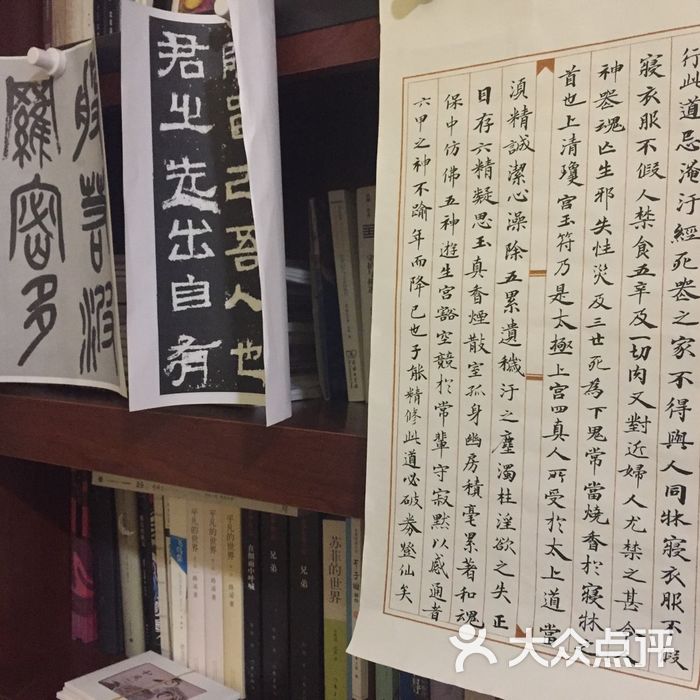 行此道忌淹汙經死喪之家不得與人同牀寢衣服不假
寢衣服不假人禁食五辛及一切肉又對近婦人尤禁之甚令
神喪魂亡生邪失性災及三世死為下鬼常當燒香於寢牀
首也上清瓊宮玉符乃是太極上宮四真人所受於太上道當
湏精誠潔心澡除五累遺穢汙之塵濁杜淫欲之失正
目存六精凝思玉真香煙散室孤身幽房積毫累著和魂
保中仿佛五神遊生宮豁空競於常輩守寂默以感通者
六甲之神不踰年而降已也子能精修此道必破券登仙矣
人也
君之先出自有
般若波
羅密多
平凡的世界
平凡的世界
平凡的世界
在细雨中呼喊
兄弟
苏菲的世界
大众点评